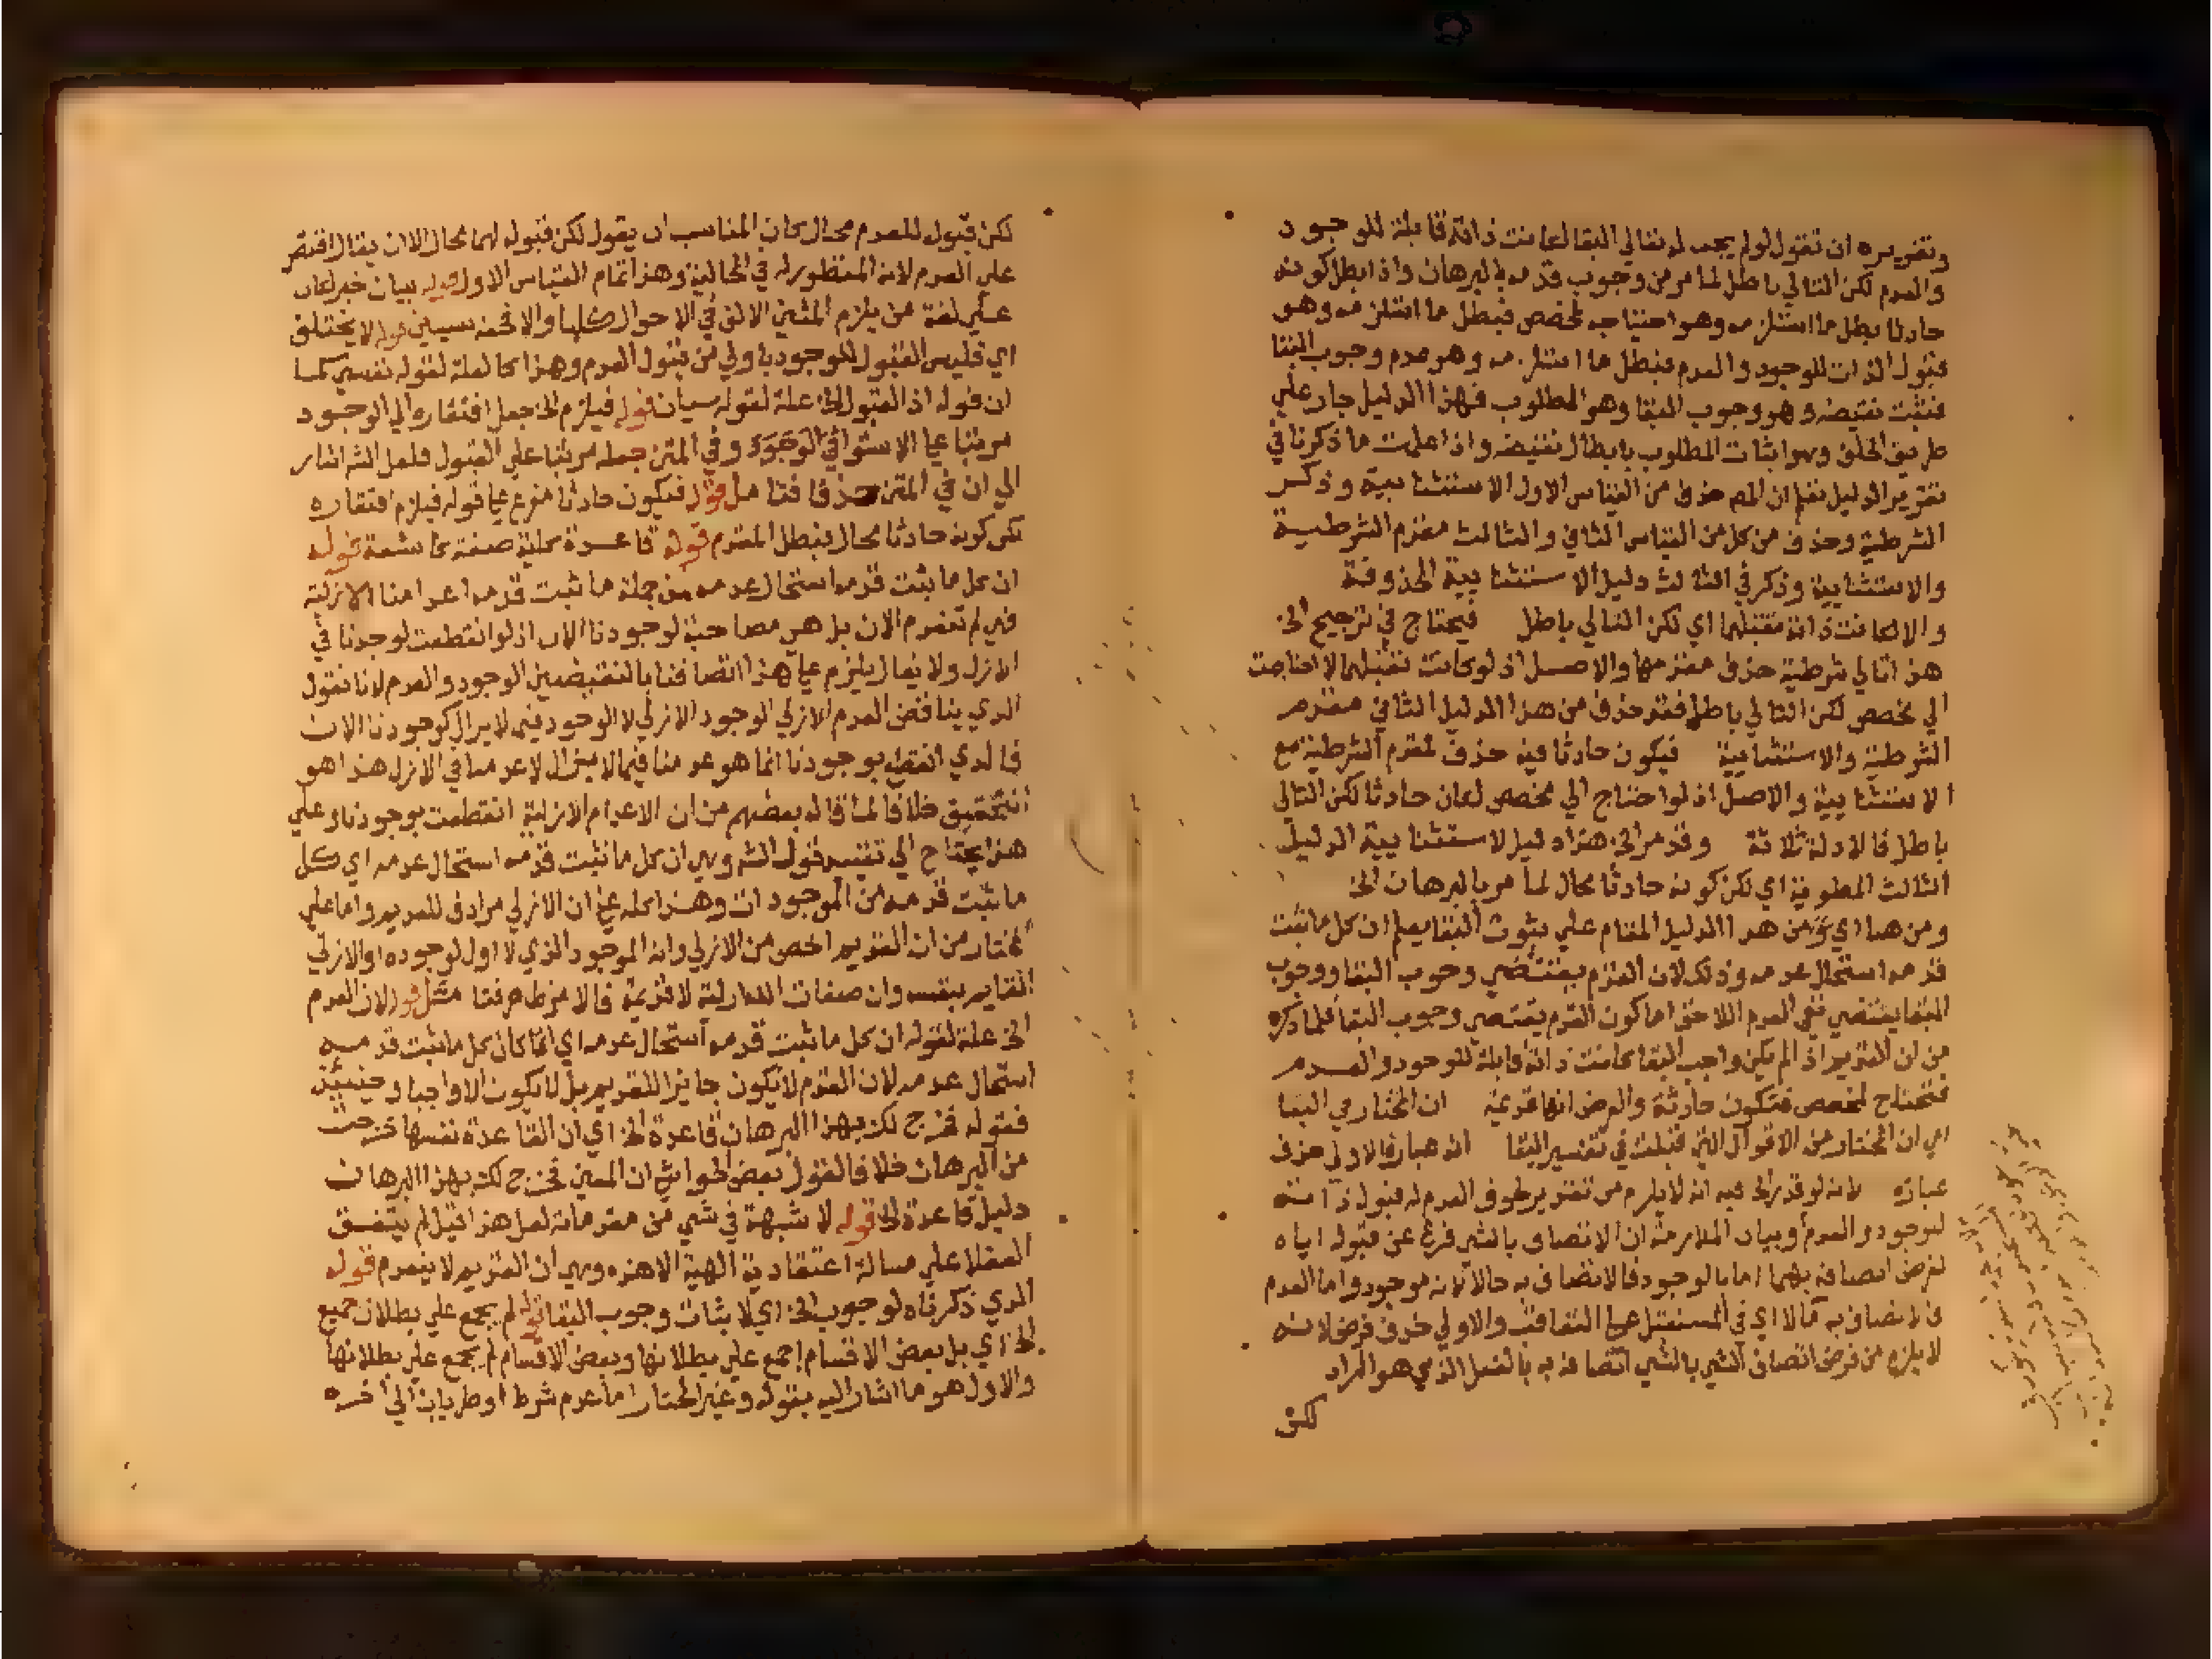 وتقريره ان تقول لو لم يجب له تعالي البقا لكانت ذاته قابلة للوجود
والعدم لكن التالي باطل لما مر من وجوب قدمه بالبرهان واذا بطل كونه
حادثا بطل ما استلزمه وهو احتياجه لمخصص فبطل ما استلزمه وهو
قبول الذات للوجود والعدم فبطل ما استلزمه وهو عدم وجوب البقا
فثبت نقيضه وهو وجوب البقا وهو المطلوب فهذا الدليل جار علي
طريق الخلف وهو اثبات المطلوب بابطال نقيضه واذا علمت ما ذكرنا في
تقرير الدليل تعلم ان المص حذف من القياس الاول الاستثنائية وذكر
الشرطية وحذف من كل من القياس الثاني والثالث مقدم الشرطية
والاستثنائية وذكر في الثالث دليل الاستثنائية المحذوفة
والا لكانت ذاته تقبلهما اي لكن التالي باطل فيحتاج في ترجيح الخ
هذا تالي شرطية حذف مقدمها والاصل اذ لو كانت تقبلهما لاحتاجت
الي مخصص لكن التالي باطل فقد حذف من هذا الدليل الثاني مقدم
الشرطية والاستثنائية فيكون حادثا فيه حذف لمقدم الشرطية مع
الاستثنائية والاصل اذ لو احتاج الي مخصص لكان حادثا لكن التالي
باطل فالادلة ثلاثة وقد مر الخ هذا دليل لاستثنائية الدليل
الثالث المطوية اي لكن كونه حادثا محال لما مر بالبرهان الخ
ومن هنا اي ومن هذا الدليل المقام علي ثبوت البقا يعلم ان كل ما ثبت
قدمه استحال عدمه وذلك لان القدم يقتضي وجوب البقا ووجوب
البقا يقتضي نفي العدم اللاحق اما كون القدم يقتضي وجوب البقا فلما ذكره
من ان القديم اذ لم يكن واجب البقا كانت ذاته قابلة للوجود والعدم
فتحتاج لمخصص فتكون حادثة والفرض انها قديمة ان المختار في البقا
اي ان المختار من الاقوال التي قيلت في تفسير البقا انه عبارة الاولي حذف
عبارة لانه لو قدر الخ فيه انه لا يلزم من تقدير لحوق العدم له قبول ذاته
للوجود والعدم وبيان الملازمة ان الاتصاف بالشي فرع عن قبوله اياه
لفرض اتصافه بهما اما بالوجود فالاتصاف به حالا لانه موجود واما العدم
فالاتصاف به مآلا اي في المستقبل علي التعاقب والاولي حذف فرض لانه
لا يلزم من فرض اتصاف الشي بالشي اتصافه به بالفعل الذي هو المراد
لكن
لكن قبوله للعدم محال كان المناسب ان يقول لكن قبوله لهما محال الا ان يقال اقتصر
علي العدم لانه المنظور له في المحالية وهذا تمام القياس الاول قوله بيان خبر لكان
علي لغة من يلزم المثني الالف في الاحوال كلها والا فحقه سيين قوله لا يختلف
اي فليس القبول للوجود باولي من قبول العدم وهذا كالعلة لقوله نفسي كما
ان قوله اذ القبول الخ علة لقوله سيان قوله فيلزم الخ جعل افتقاره الي الوجود
مرتبا علي الاستوا في الوجود وفي المتن جعله مرتبا علي القبول فلعل الشم اشار
الي ان في المتن حذفا فتامل قوله فيكون حادثا مفرع علي قوله فيلزم افتقاره
لكن كونه حادثا محال فبطل المقدم قوله قاعدة كلية صفة كاشفة قوله
ان كل ما ثبت قدمه استحال عدمه من جملة ما ثبت قدمه اعدامنا الازلية
فهي لم تنعدم الان بل هي مصاحبة لوجودنا الان اذ لو انقطعت لوجدنا في
الازل ولا يقال يلزم علي هذا اتصافنا بالنقيضين الوجود والعدم لانا نقول
الذي يناقض العدم الازلي الوجود الازلي لا الوجود فيما لا يزال كوجودنا الان
فالذي انقطع بوجودنا انما هو عدمنا فيما لا يزال لا عدمنا في الازل هذا هو
التحقيق خلافا لما قاله بعضهم من ان الاعدام الازلية انقطعت بوجودنا وعلي
هذا يحتاج الي تقييد قول الشم وهي ان كل ما ثبت قدمه استحال عدمه اي كل
ما ثبت قدمه من الموجودات وهذا كله علي ان الازلي مرادف للقديم واما علي
المختار من ان القديم اخص من الازلي وانه الموجود الذي لا اول لوجوده او الازلي
القايم بنفسه وان صفات الله ازلية لا قديمة فالامر ظاهر فتامل قوله لان العدم
الخ علة لقوله ان كل ما ثبت قدمه استحال عدمه اي انما كان كل ما ثبت قدمه
استحال عدمه لان القدم لا يكون جايزا للقديم بل لا يكون الا واجبا وحينئذ
فقوله فخرج لك بهذا البرهان قاعدة الخ اي ان القاعدة نفسها خرجت
من البرهان خلافا لقول بعض الحواشي ان المعني فخرج لك بهذا البرهان
دليل قاعدة الخ قوله لا شبهة في شي من مقدماته لعل هذا قيل لم يتفق
العقلا علي مسالة اعتقادية الهية الا هذه وهي ان القديم لا ينعدم قوله
الذي ذكرناه لوجوب الخ اي لاثبات وجوب البقا قوله لم يجمع علي بطلان جميع
الخ اي بل بعض الاقسام اجمع علي بطلانها وبعض الاقسام لم يجمع علي بطلانها
والاول هو ما اشار اليه بقوله وغير المختار اما عدم شرط او طريان الي اخره